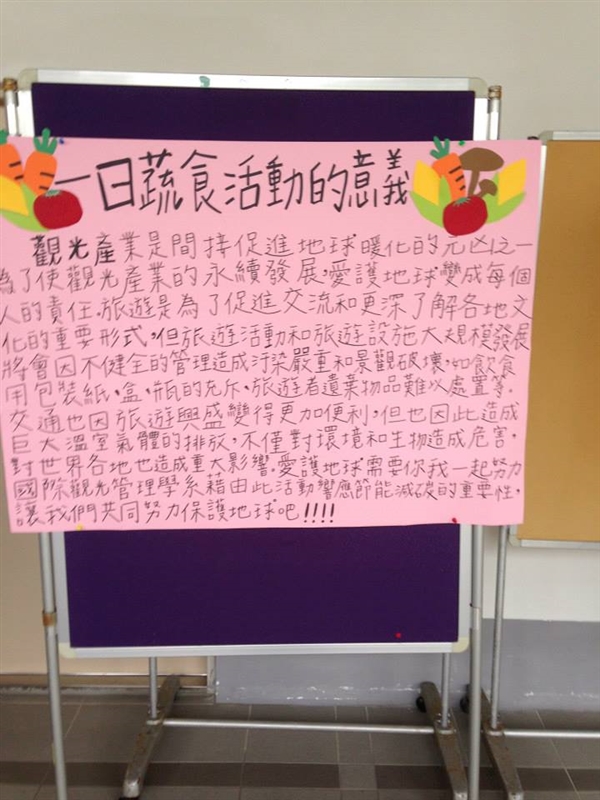 一日蔬食活動的意義
觀光產業是間接促進地球暖化的元凶之一
為了使觀光產業的永續發展,愛護地球變成每個
人的責任.旅遊是為了促進交流和更深了解各地文
化的重要形式,但旅遊活動和旅遊設施大規模發展
將會因不健全的管理造成汙染嚴重和景觀破壞,如飲食
用包裝紙,盒,瓶的充斥,旅遊者遺棄物品難以處置等.
交通也因旅遊興盛變得更加便利,但也因此造成
巨大溫室氣體的排放,不僅對環境和生物造成危害,
對世界各地也造成重大影響.愛護地球需要你我一起努力
國際觀光管理學系藉由此活動響應節能減碳的重要性,
讓我們共同努力保護地球吧!!!!